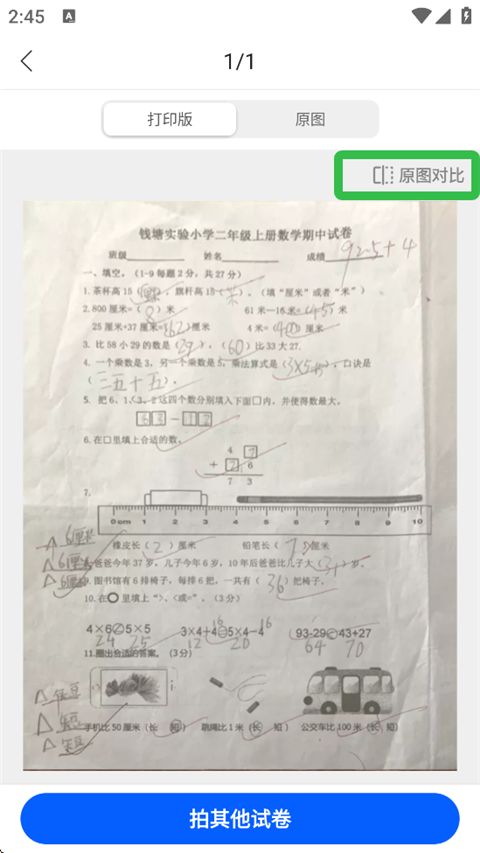 2:45
A
1/1
打印版 原图
原图对比
钱塘实验小学二年级上册数学期中试卷
班级 姓名 成绩 92.5+4
一、填空。(1-9每题2分,共27分)
1.茶杯高15( ),旗杆高15(米)。(填“厘米”或者“米”)
2.800厘米=(8)米 61米—16米=(45)米
25厘米+37厘米=(62)厘米 4米=(400)厘米
3. 比58小29的数是(29),(60)比33大27.
4. 一个乘数是3,另一个乘数是5,乘法算式是(3×5=15),口诀是
(三五十五)。
5. 把6、1、3、2这四个数分别填入下面□内,并使得数最大。
63-12
6.在□里填上合适的数。
4 7
+ 2 6
7 3
7.
0cm 1 2 3 4 5 6 7 8 9 10
6厘米 橡皮长(2)厘米 铅笔长( )厘米
6厘米 爸爸今年37岁,儿子今年6岁,10年后爸爸比儿子大(31)岁。
6厘米 9.图书馆有6排椅子,每排6把,一共有(36)把椅子。
10.在○里填上“>、<或=”。(3分)
4×6 5×5 3×4+4 5×4-4 93-29 43+27
24 25 12 16 20 16 64 70
11.圈出合适的答案。(3分)
手机比50厘米(长 短) 跳绳比1米(长 短) 公交车比100米(长 短)
拍其他试卷